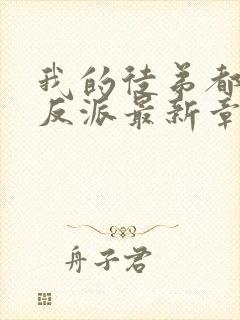 我的徒弟都
反派最新章
舟子君